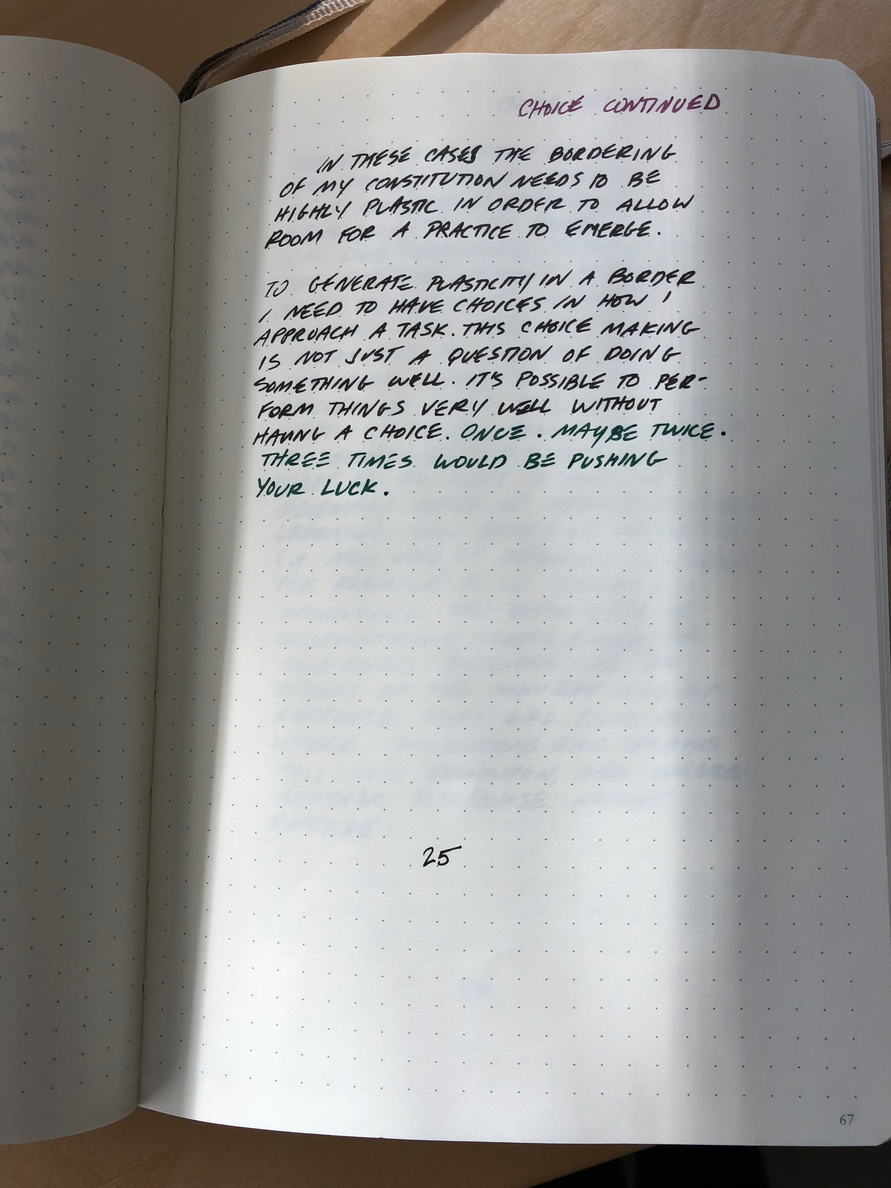 CHOICE CONTINUED
IN THESE CASES THE BORDERING
OF MY CONSTITUTION NEEDS TO BE
HIGHLY PLASTIC IN ORDER TO ALLOW
ROOM FOR A PRACTICE TO EMERGE.
TO GENERATE PLASTICITY IN A BORDER
I NEED TO HAVE CHOICES IN HOW I
APPROACH A TASK. THIS CHOICE MAKING
IS NOT JUST A QUESTION OF DOING
SOMETHING WELL. IT'S POSSIBLE TO PER-
FORM THINGS VERY WELL WITHOUT
HAVING A CHOICE. ONCE. MAYBE TWICE.
THREE TIMES WOULD BE PUSHING
YOUR LUCK.
25
67